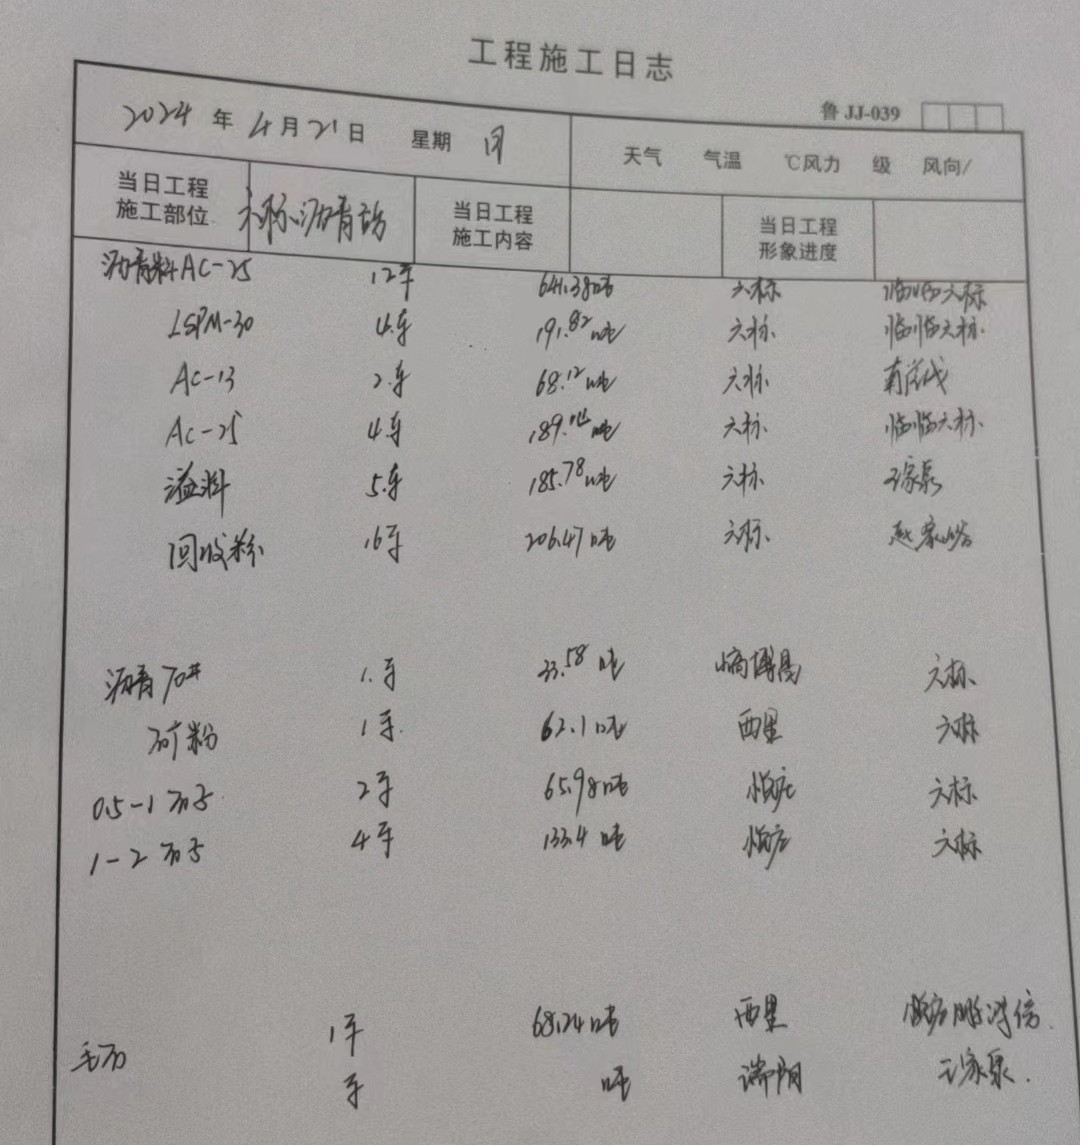 工程施工日志
鲁 JJ-039
2024 年 4 月 21 日 星期 日 天气 气温 ℃风力 级 风向/
当日工程施工部位 六标沥青站 当日工程施工内容 当日工程形象进度
沥青料AC-25 12车 641.38吨 六标 临临六标
LSPM-30 4车 191.82吨 六标 临临六标
AC-13 2车 68.12吨 六标
AC-25 4车 189.04吨 六标 临临六标
溢料 5车 185.78吨 六标 王家泉
回收粉 16车 206.47吨 六标 赵家峪
沥青70# 1车 33.58吨 六标
矿粉 1车 62.1吨 西里 六标
0.5-1石子 2车 65.98吨 六标
1-2石子 4车 133.4吨 六标
1车 68.24吨 西里
毛石 车 吨 端阳 王家泉